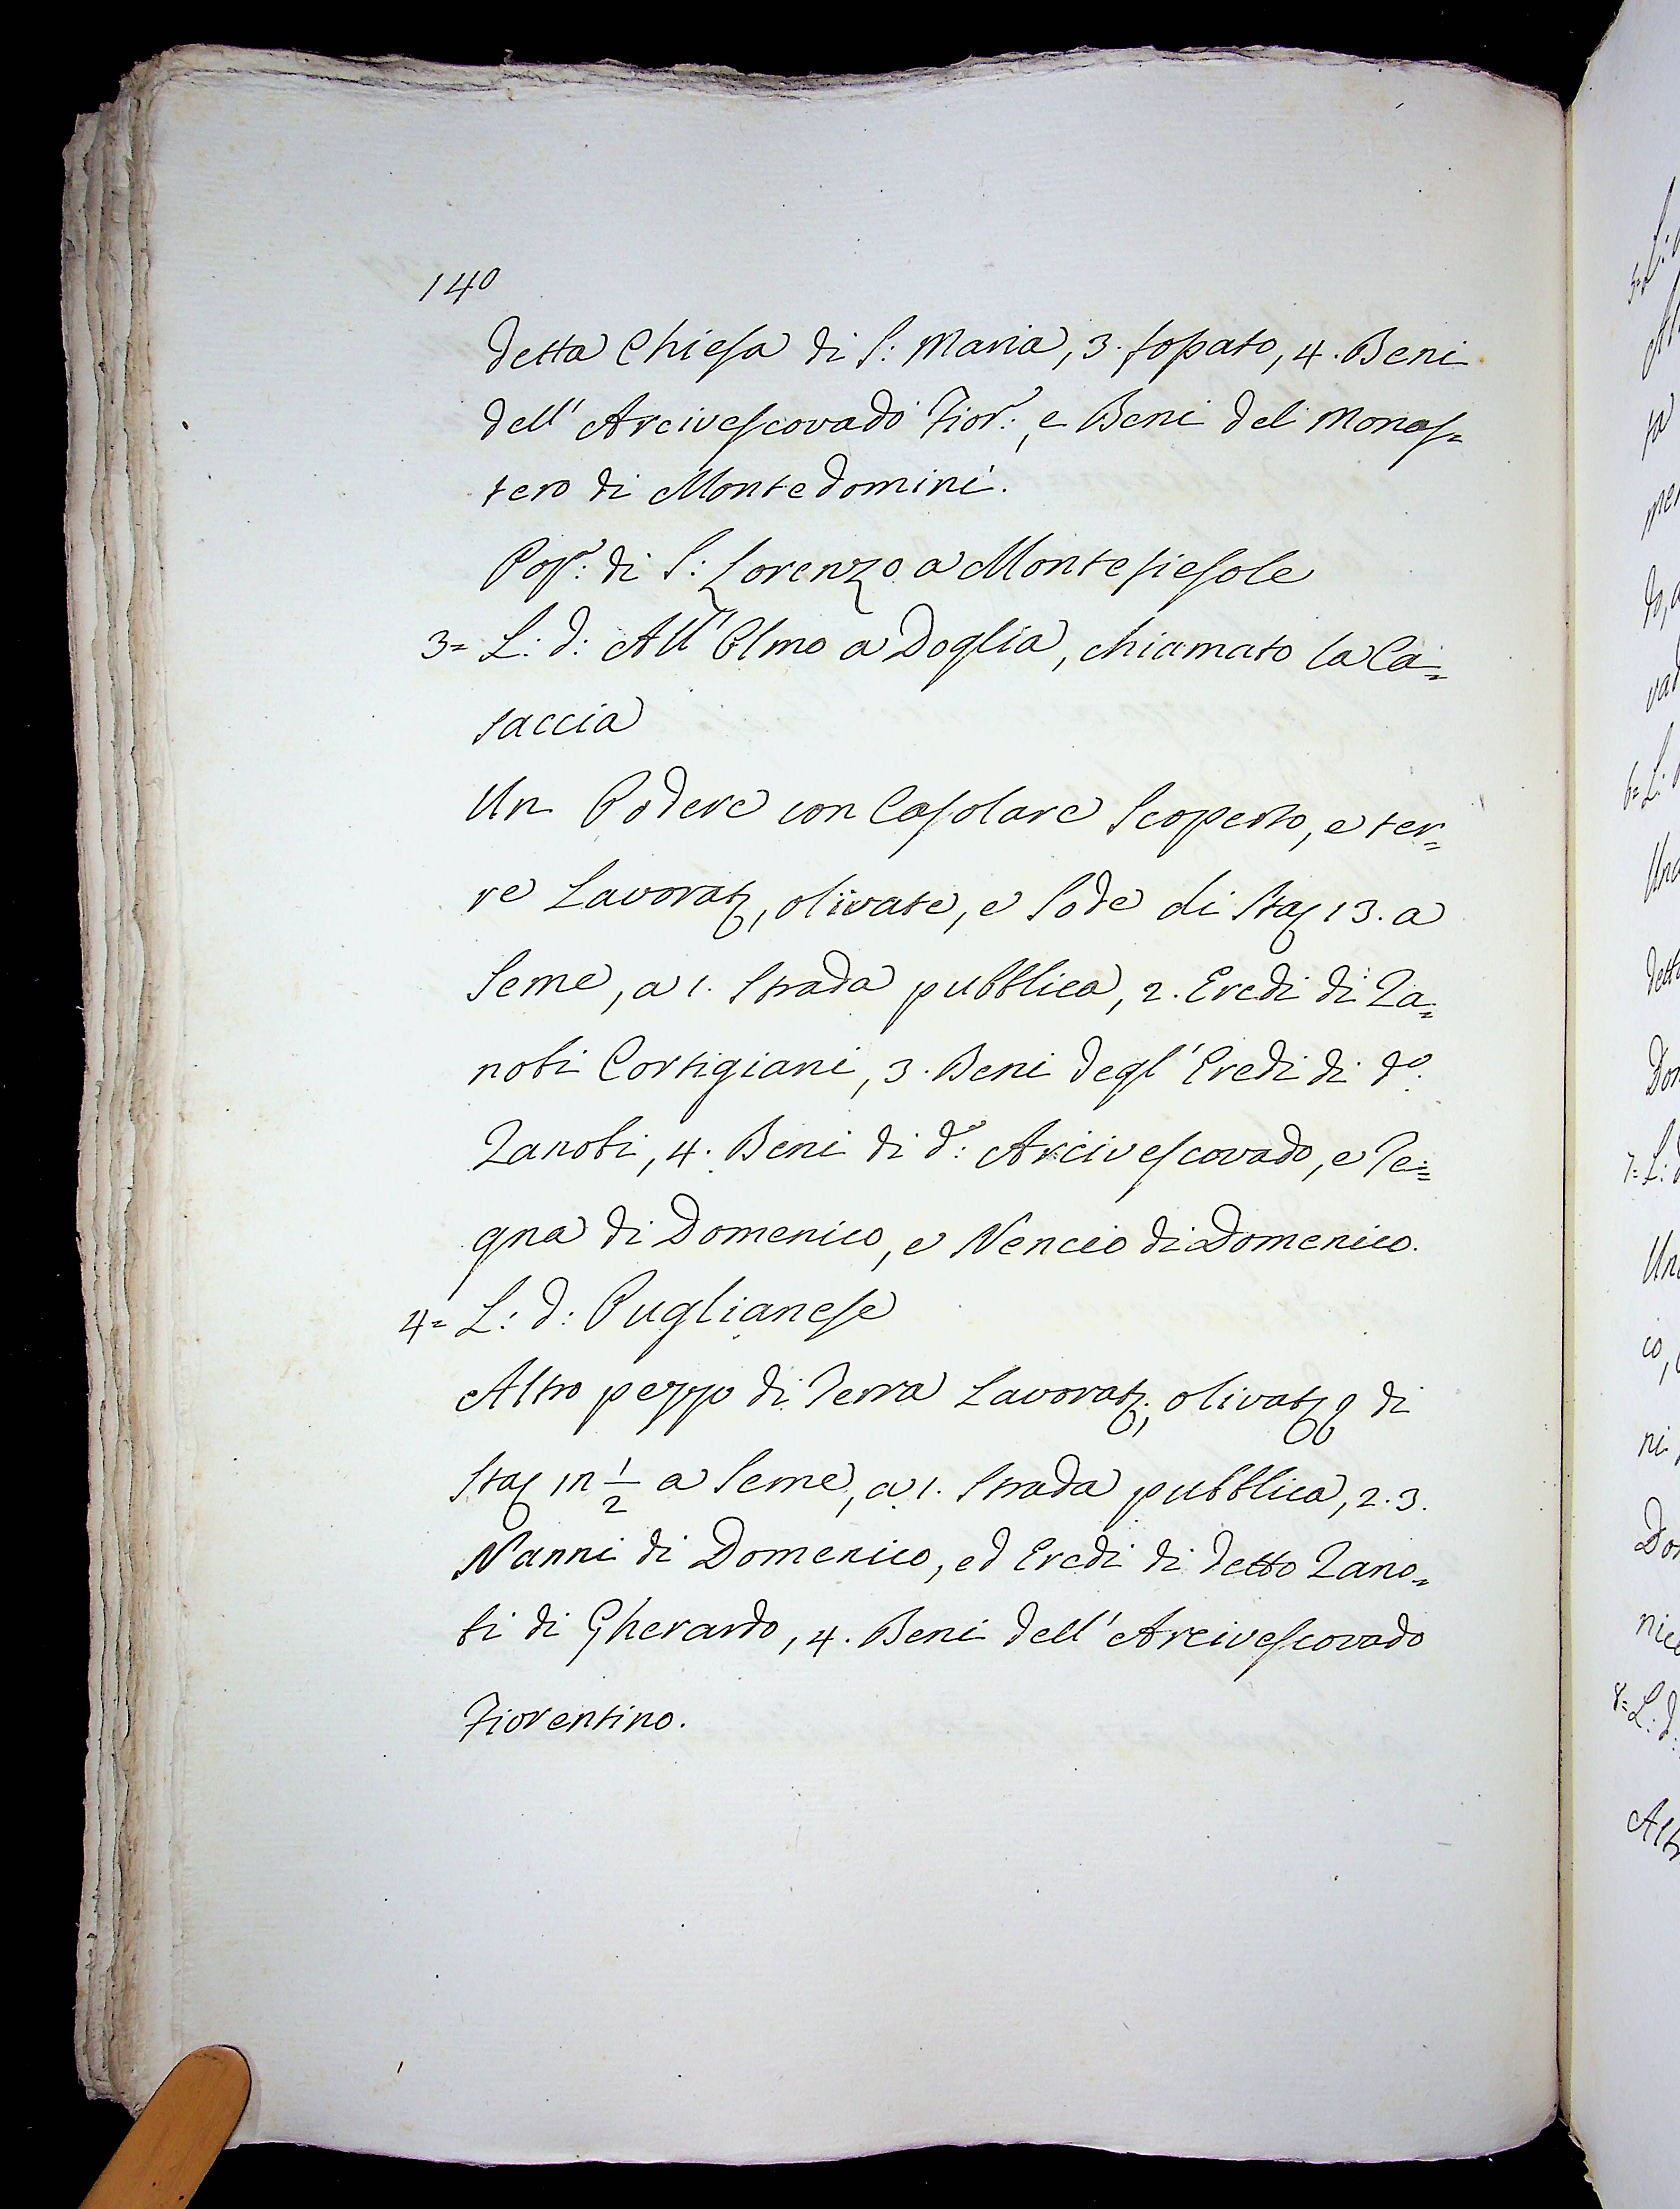 140
detta Chiesa di S: Maria, 3. fossato, 4. Beni
dell' Arcivescovado Fior:, e Beni del Monas=
tero di Montedomini.
Pop: di S: Lorenzo a Montefiesole
3= L: d: All' Olmo a Doglia, chiamato la Ca=
saccia
Un Podere con Casolare scoperto, e ter=
re Lavorat, olivate, e sode di Sta 13. a
seme, a 1. Strada pubblica, 2. Eredi di Za=
nobi Cortigiani, 3. Beni degl' Eredi di do:
Zanobi, 4. Beni di do: Arcivescovado, e Te=
gna di Domenico, e Nencio di Domenico.
4= L: d: Puglianese
Altro pezzo di Terra Lavorat, olivat di
Sta in 1/2 a seme, a 1. Strada pubblica, 2. 3.
Nanni di Domenico, ed Eredi di detto Zano=
bi di Gherardo, 4. Beni dell' Arcivescovado
Fiorentino.